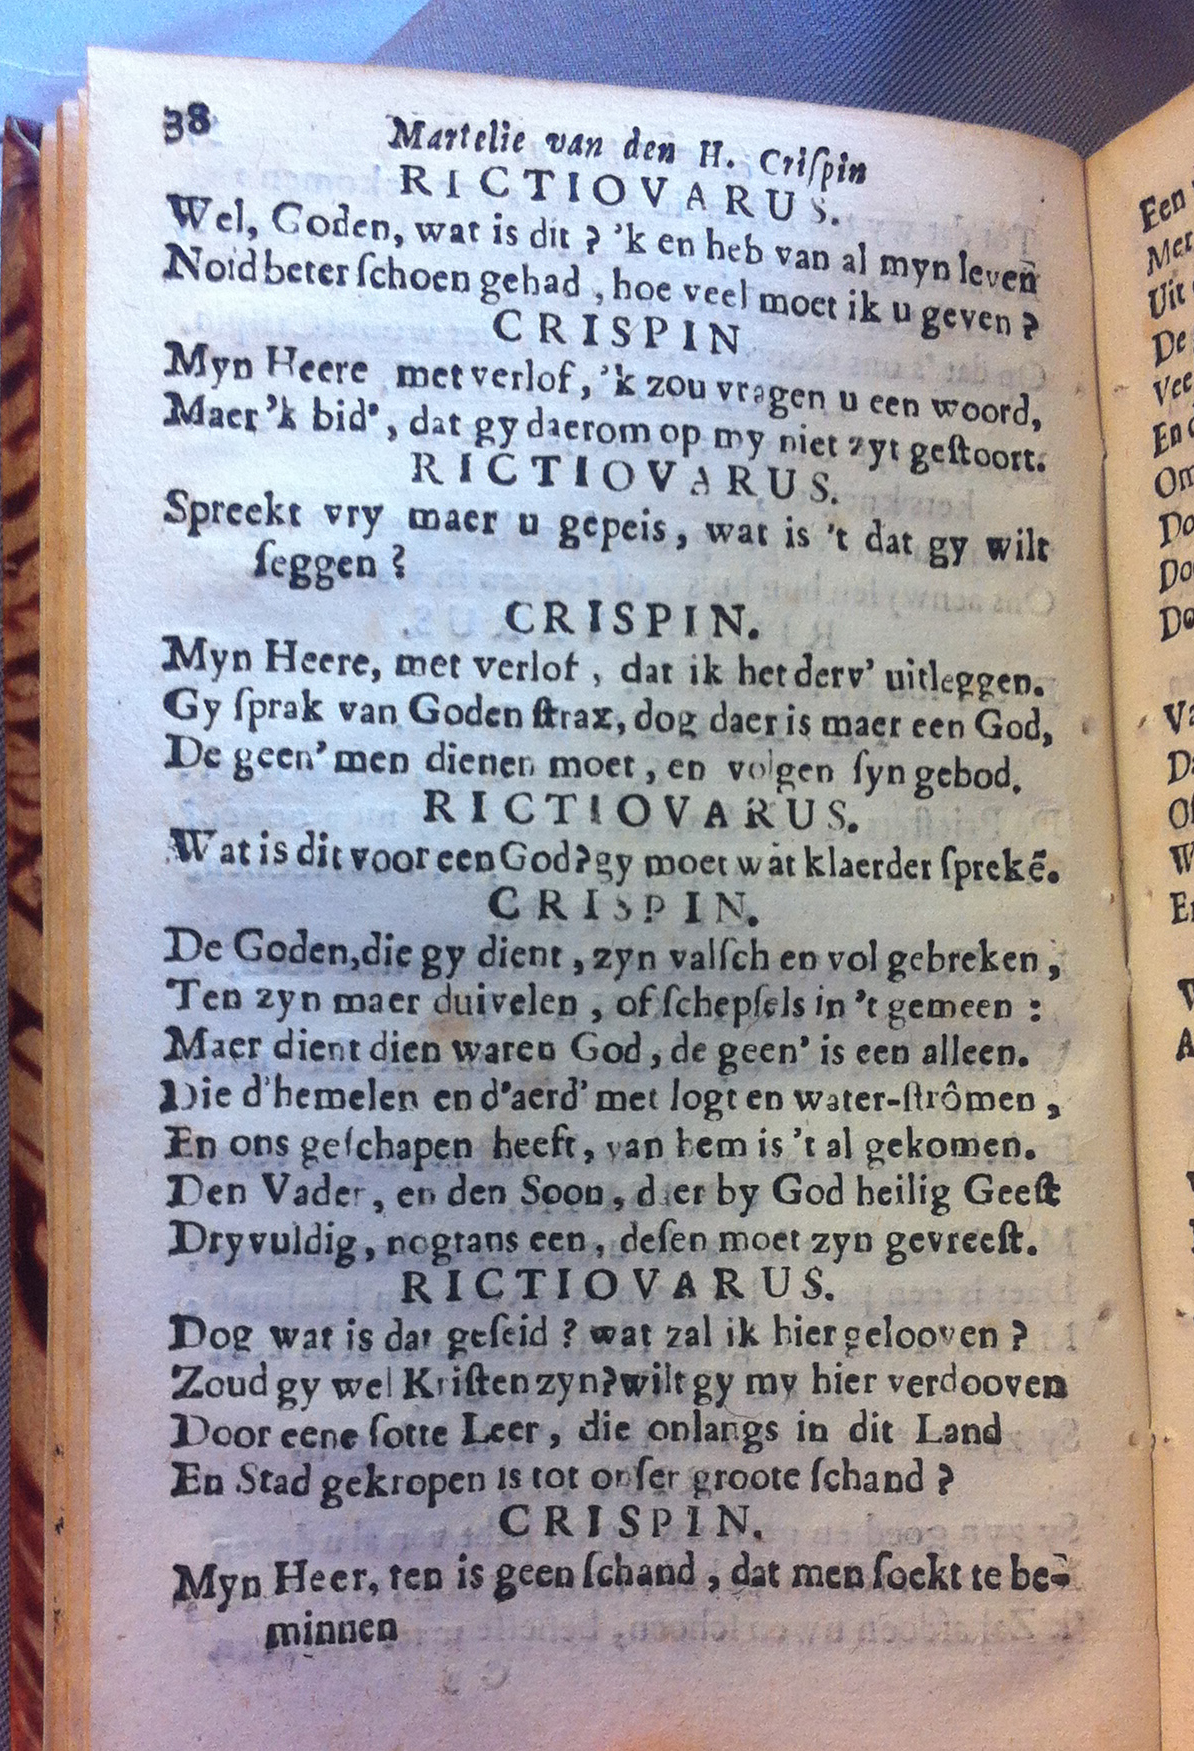 38
Martelie van den H. Criſpin
RICTIOVARUS.
Wel, Goden, wat is dit ? 'k en heb van al myn leveñ
Noid beter ſchoen gehad , hoe veel moet ik u geven ?
CRISPIN
Myn Heere met verlof, 'k zou vragen u een woord,
Maer 'k bid', dat gy daerom op my niet zyt geſtoort.
RICTIOVARUS.
Spreekt vry maer u gepeis, wat is 't dat gy wilt
ſeggen ?
CRISPIN.
Myn Heere, met verlof , dat ik het derv' uitleggen.
Gy ſprak van Goden ſtrax, dog daer is maer een God,
De geen' men dienen moet , en volgen ſyn gebod.
RICTIOVARUS.
Wat is dit voor een God? gy moet wat klaerder ſprekẽ.
CRISPIN.
De Goden, die gy dient , zyn valſch en vol gebreken ,
Ten zyn maer duivelen , of ſchepſels in 't gemeen :
Maer dient dien waren God, de geen' is een alleen.
Die d'hemelen en d'aerd' met logt en water-ſtrômen ,
En ons geſchapen heeft, van hem is 't al gekomen.
Den Vader, en den Soon, daer by God heilig Geeſt
Dryvuldig, nogtans een, deſen moet zyn gevreeſt.
RICTIOVARUS.
Dog wat is dat geſeid ? wat zal ik hier gelooven ?
Zoud gy wel Kriſten zyn? wilt gy my hier verdooven
Door eene ſotte Leer, die onlangs in dit Land
En Stad gekropen is tot onſer groote ſchand ?
CRISPIN.
Myn Heer, ten is geen ſchand , dat men ſoekt te be-
minnen
Een
Uit
De
Vee